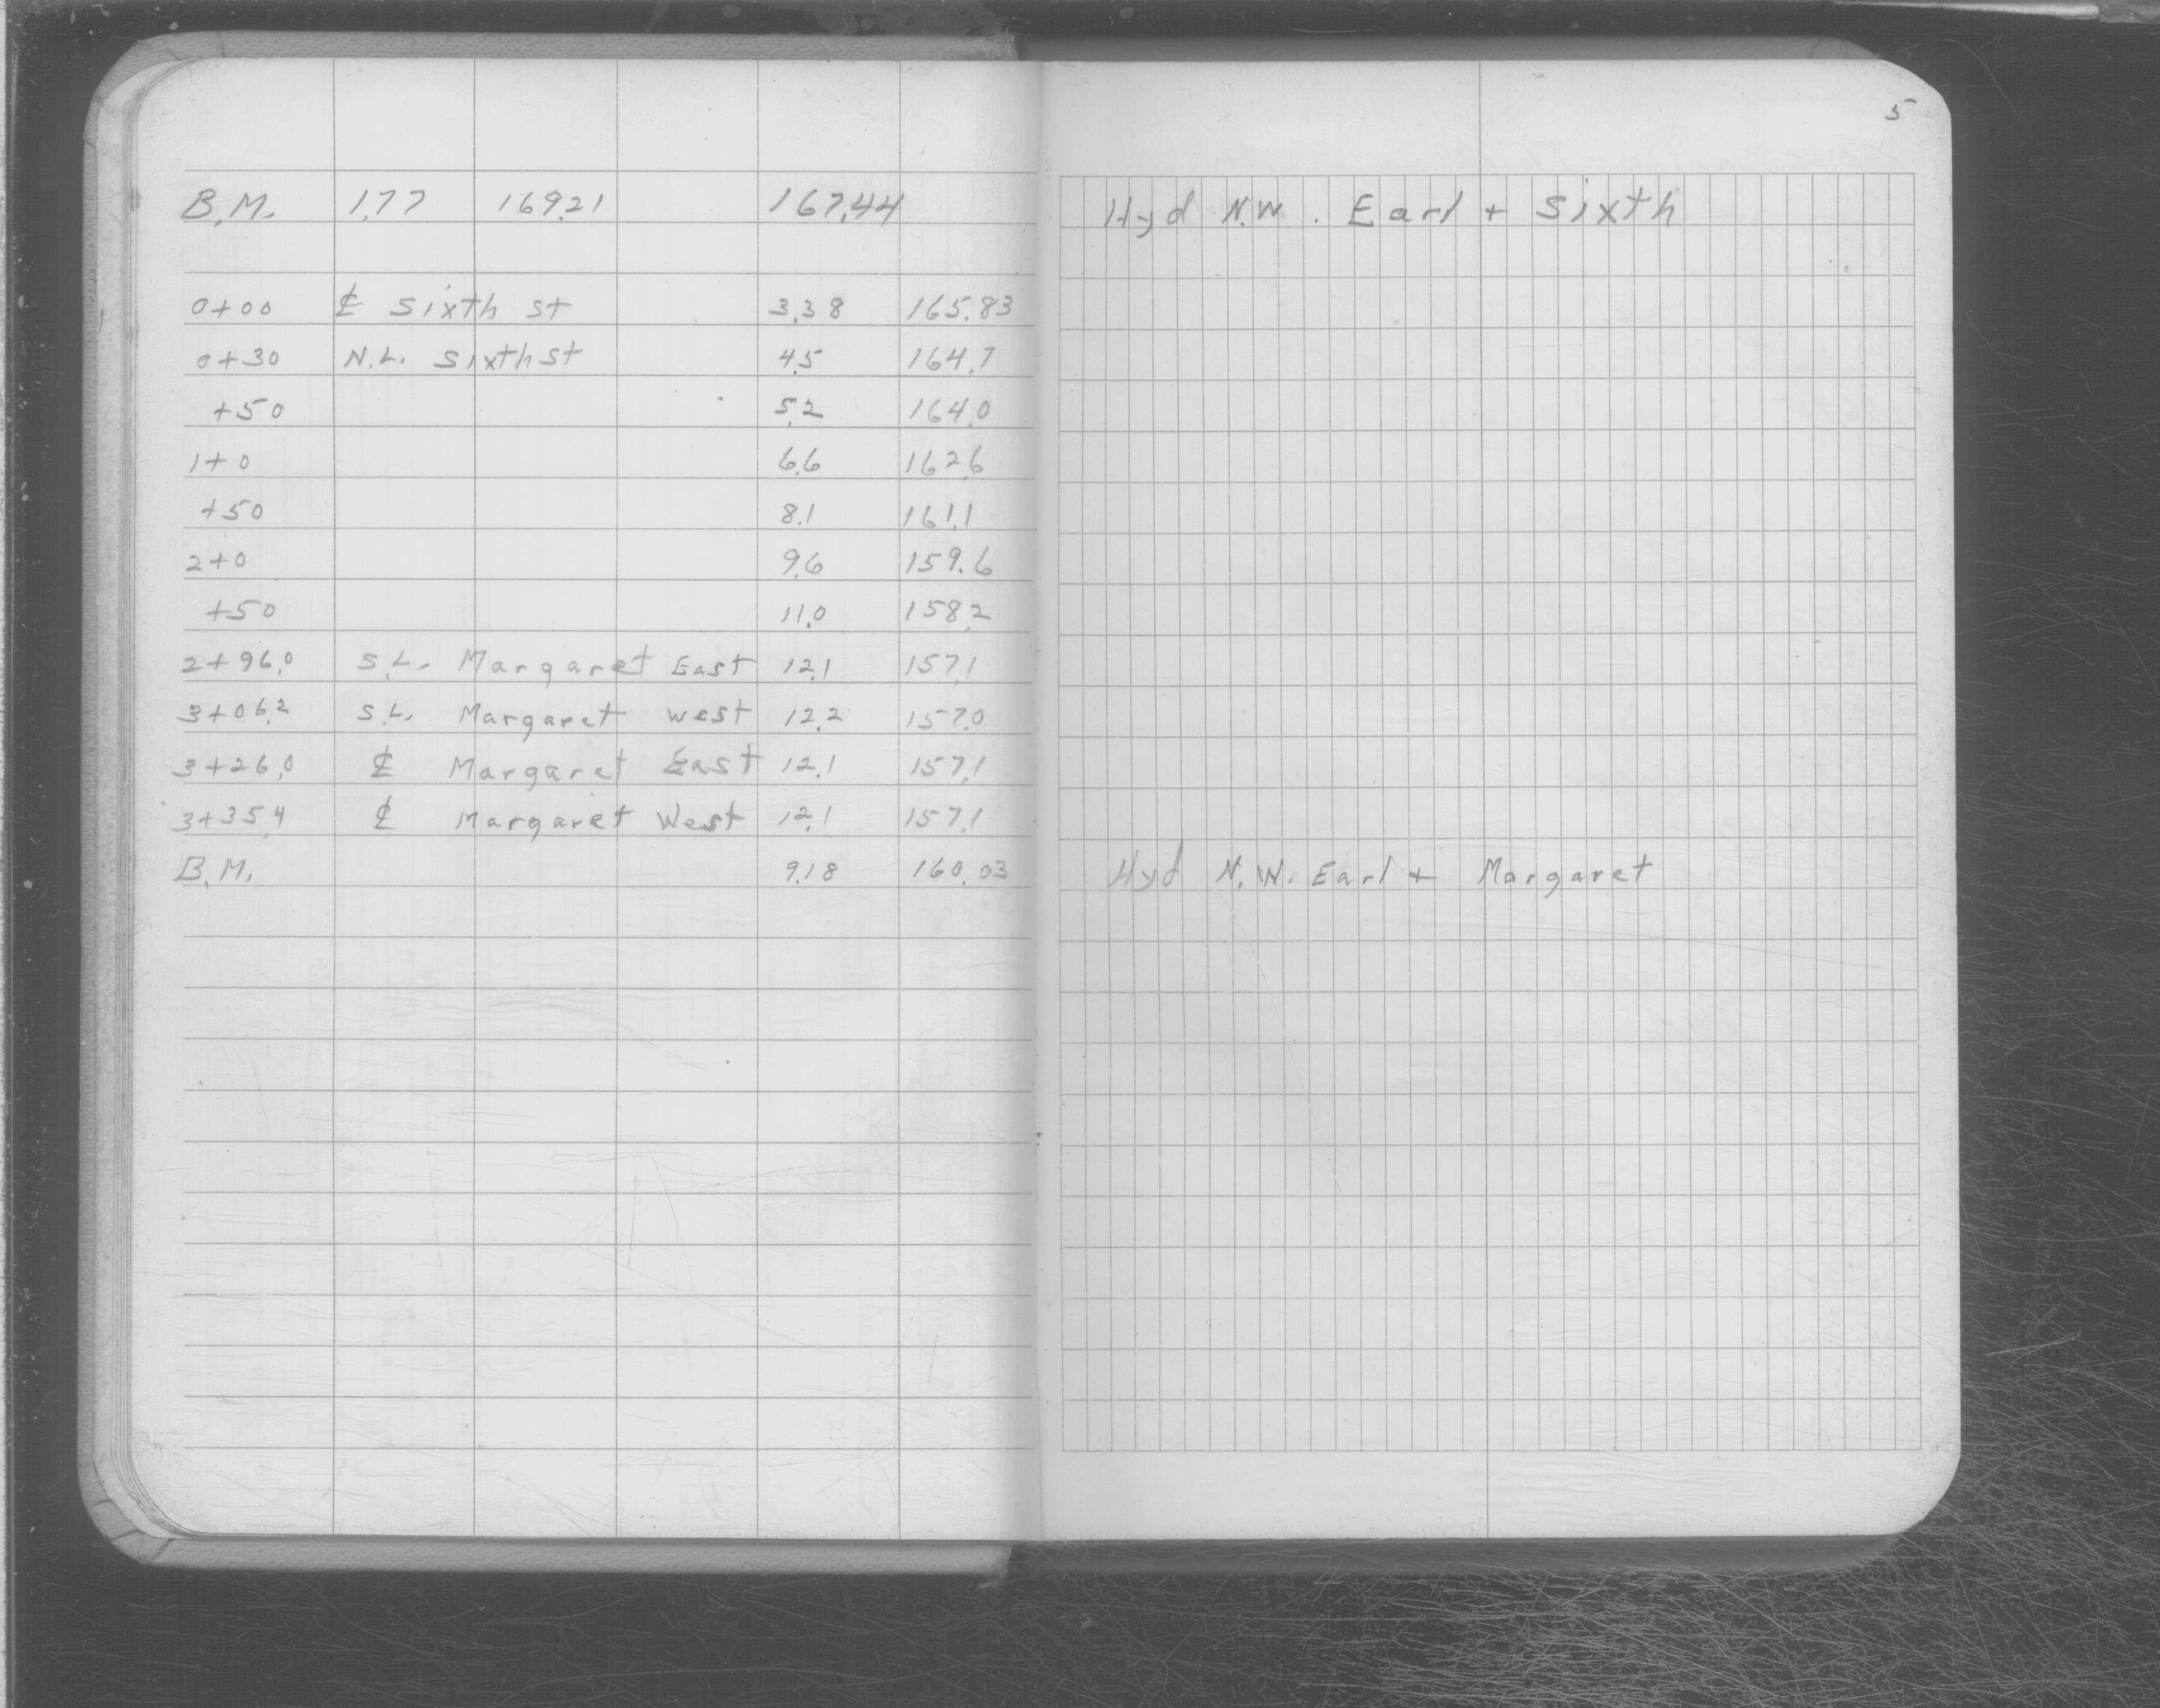 5
B.M. 1.77 169.21 167.44 Hyd N.W. Earl + Sixth
0+00 ℄ Sixth St 3.38 165.83
0+30 N.L. Sixth St 4.5 164.7
+50 5.2 164.0
1+0 6.6 162.6
+50 8.1 161.1
2+0 9.6 159.6
+50 11.0 158.2
2+96.0 S.L. Margaret East 12.1 157.1
3+06.2 S.L. Margaret West 12.2 157.0
3+26.0 ℄ Margaret East 12.1 157.1
3+35.4 ℄ Margaret West 12.1 157.1
B.M. 9.18 160.03 Hyd N.W. Earl + Margaret